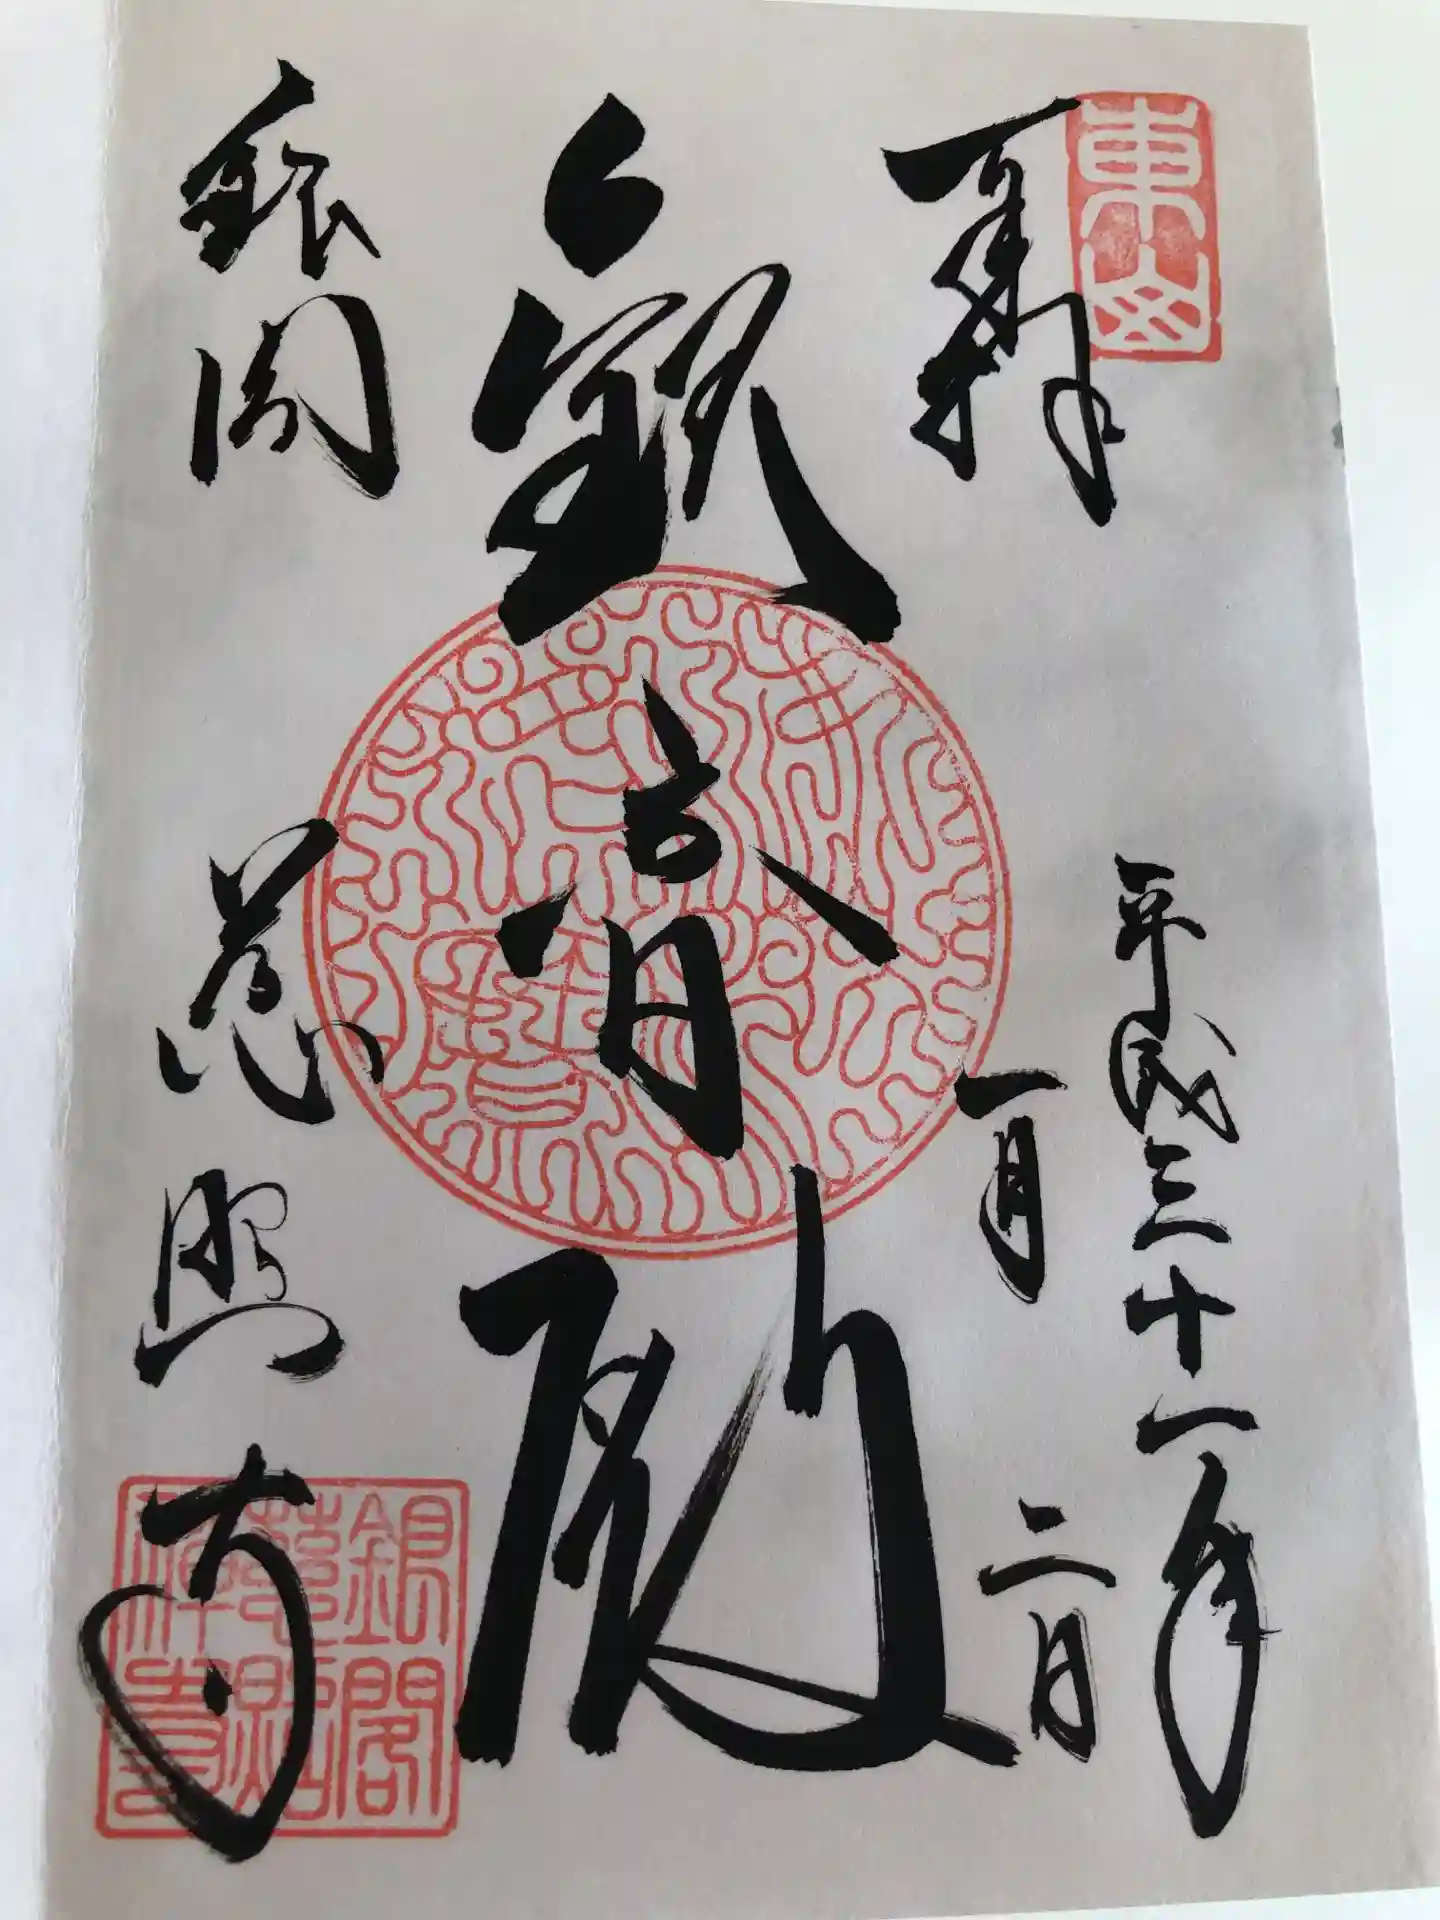 東山
奉拝
平成三十一年
一月二日
観音殿
銀閣
慈照寺
銀閣
慈照
禅寺